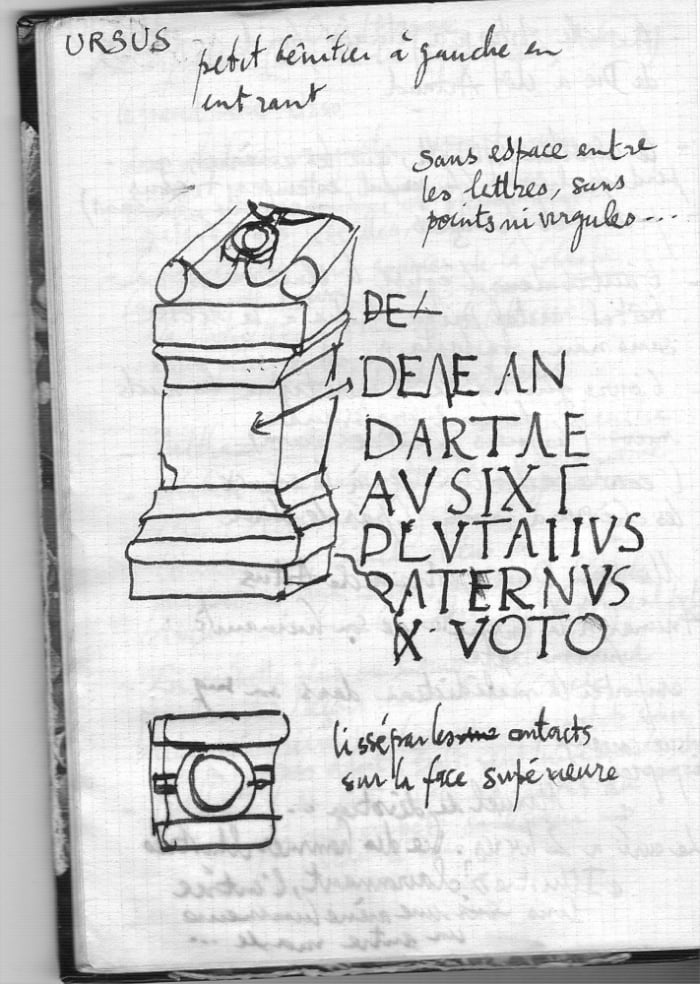 URSUS
petit bénitier à gauche en
entrant
sans espace entre
les lettres, sans
points ni virgules...
DE
DEAE AN
DARTAE
AVSIXT
PLVTATIVS
PATERNVS
X·VOTO
lissé par les contacts
sur la face supérieure